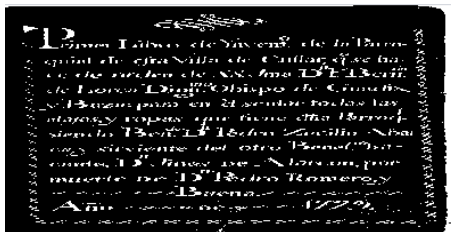 Primer Libro de Ynvent.º de la Parro-
quia de esta Villa de Cullar, q.e se ha-
ce de orden de S.S. Ilma D.n F.r Bern.do
de Lorca Dign.mo Obispo de Guadix
y Baza; para en el sentar todas las
alajas, y ropas que tiene dha Parroq.l
siendo Ben.do D.n Pedro
y sirviente del otro Benef.do va-
cante, D.n Jines de Alarcon, por
muerte de D.n Pedro Romero, y
Baena.
Año de 177